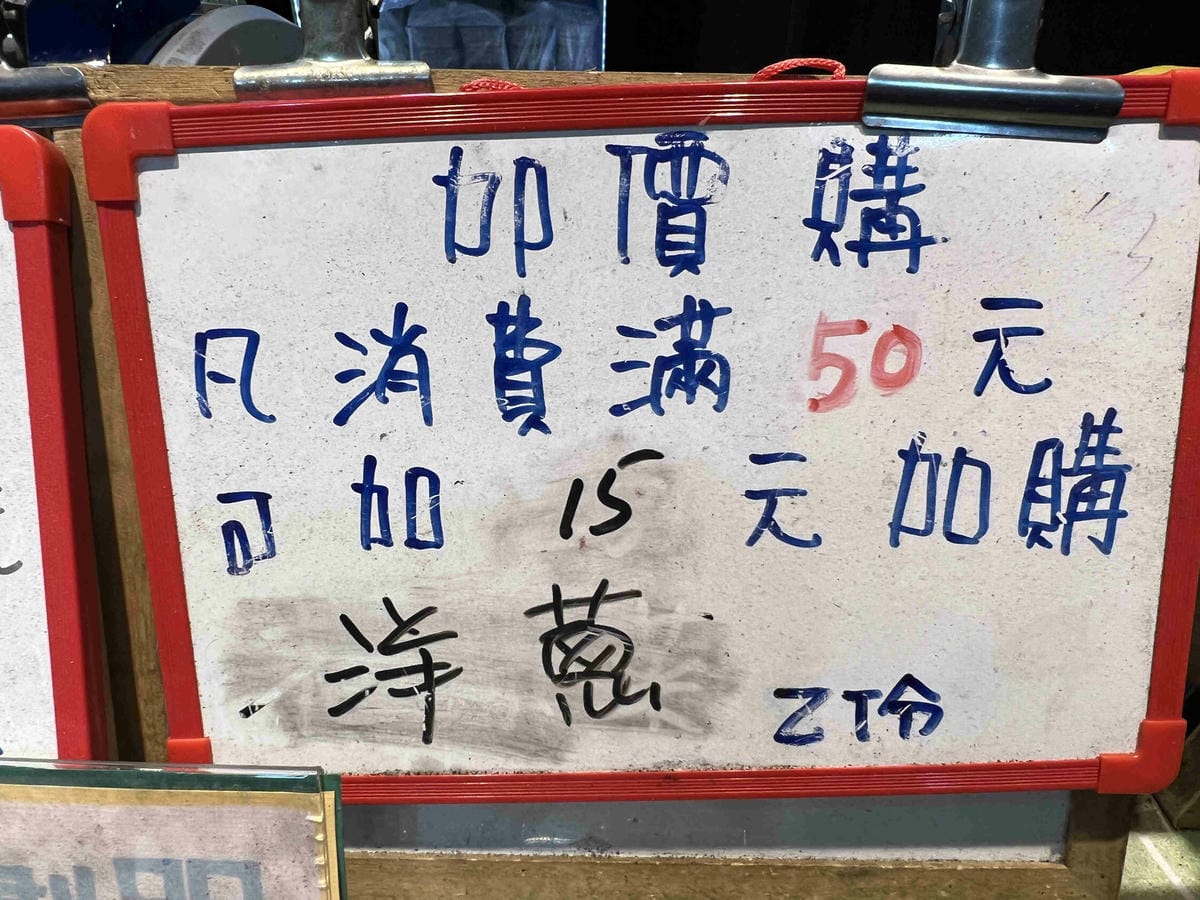 加價購
凡消費滿50元
可加15元加購
洋蔥 乙份